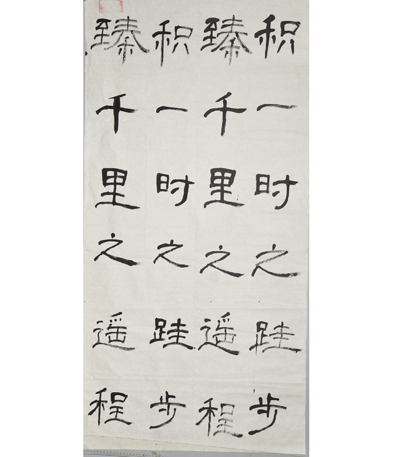 积一时之跬步
臻千里之遥程
积一时之跬步
臻千里之遥程